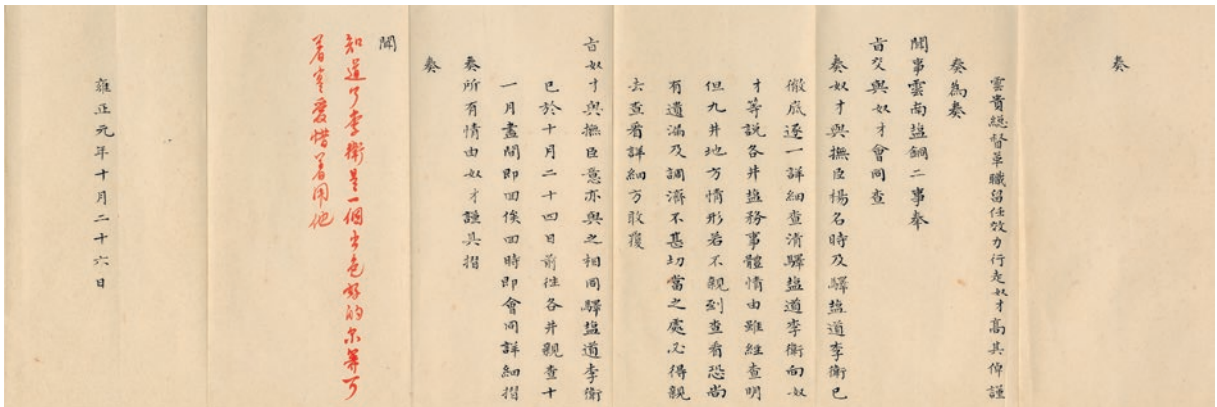 奏
雲貴總督革職留任效力行走奴才高其倬謹
奏為奏
聞事雲南盐銅二事奉
旨交與奴才會同查
奏奴才與撫臣楊名時及驛盐道李衛已
徹底逐一詳細查清驛盐道李衛向奴
才等說各井盐務事體情由雖經查明
但九井地方情形若不親到查看恐尚
有遺漏及調濟不甚切當之處必得親
去查看詳細方敢覆
旨奴才與撫臣意亦與之相同驛盐道李衛
已於十月二十四日前徃各井親查十
一月盡間即回俟回時即會同詳細摺
奏所有情由奴才謹具摺
奏
聞
知道了李衛是一個出色好的尔等可
着实爱惜着用他
雍正元年十月二十六日